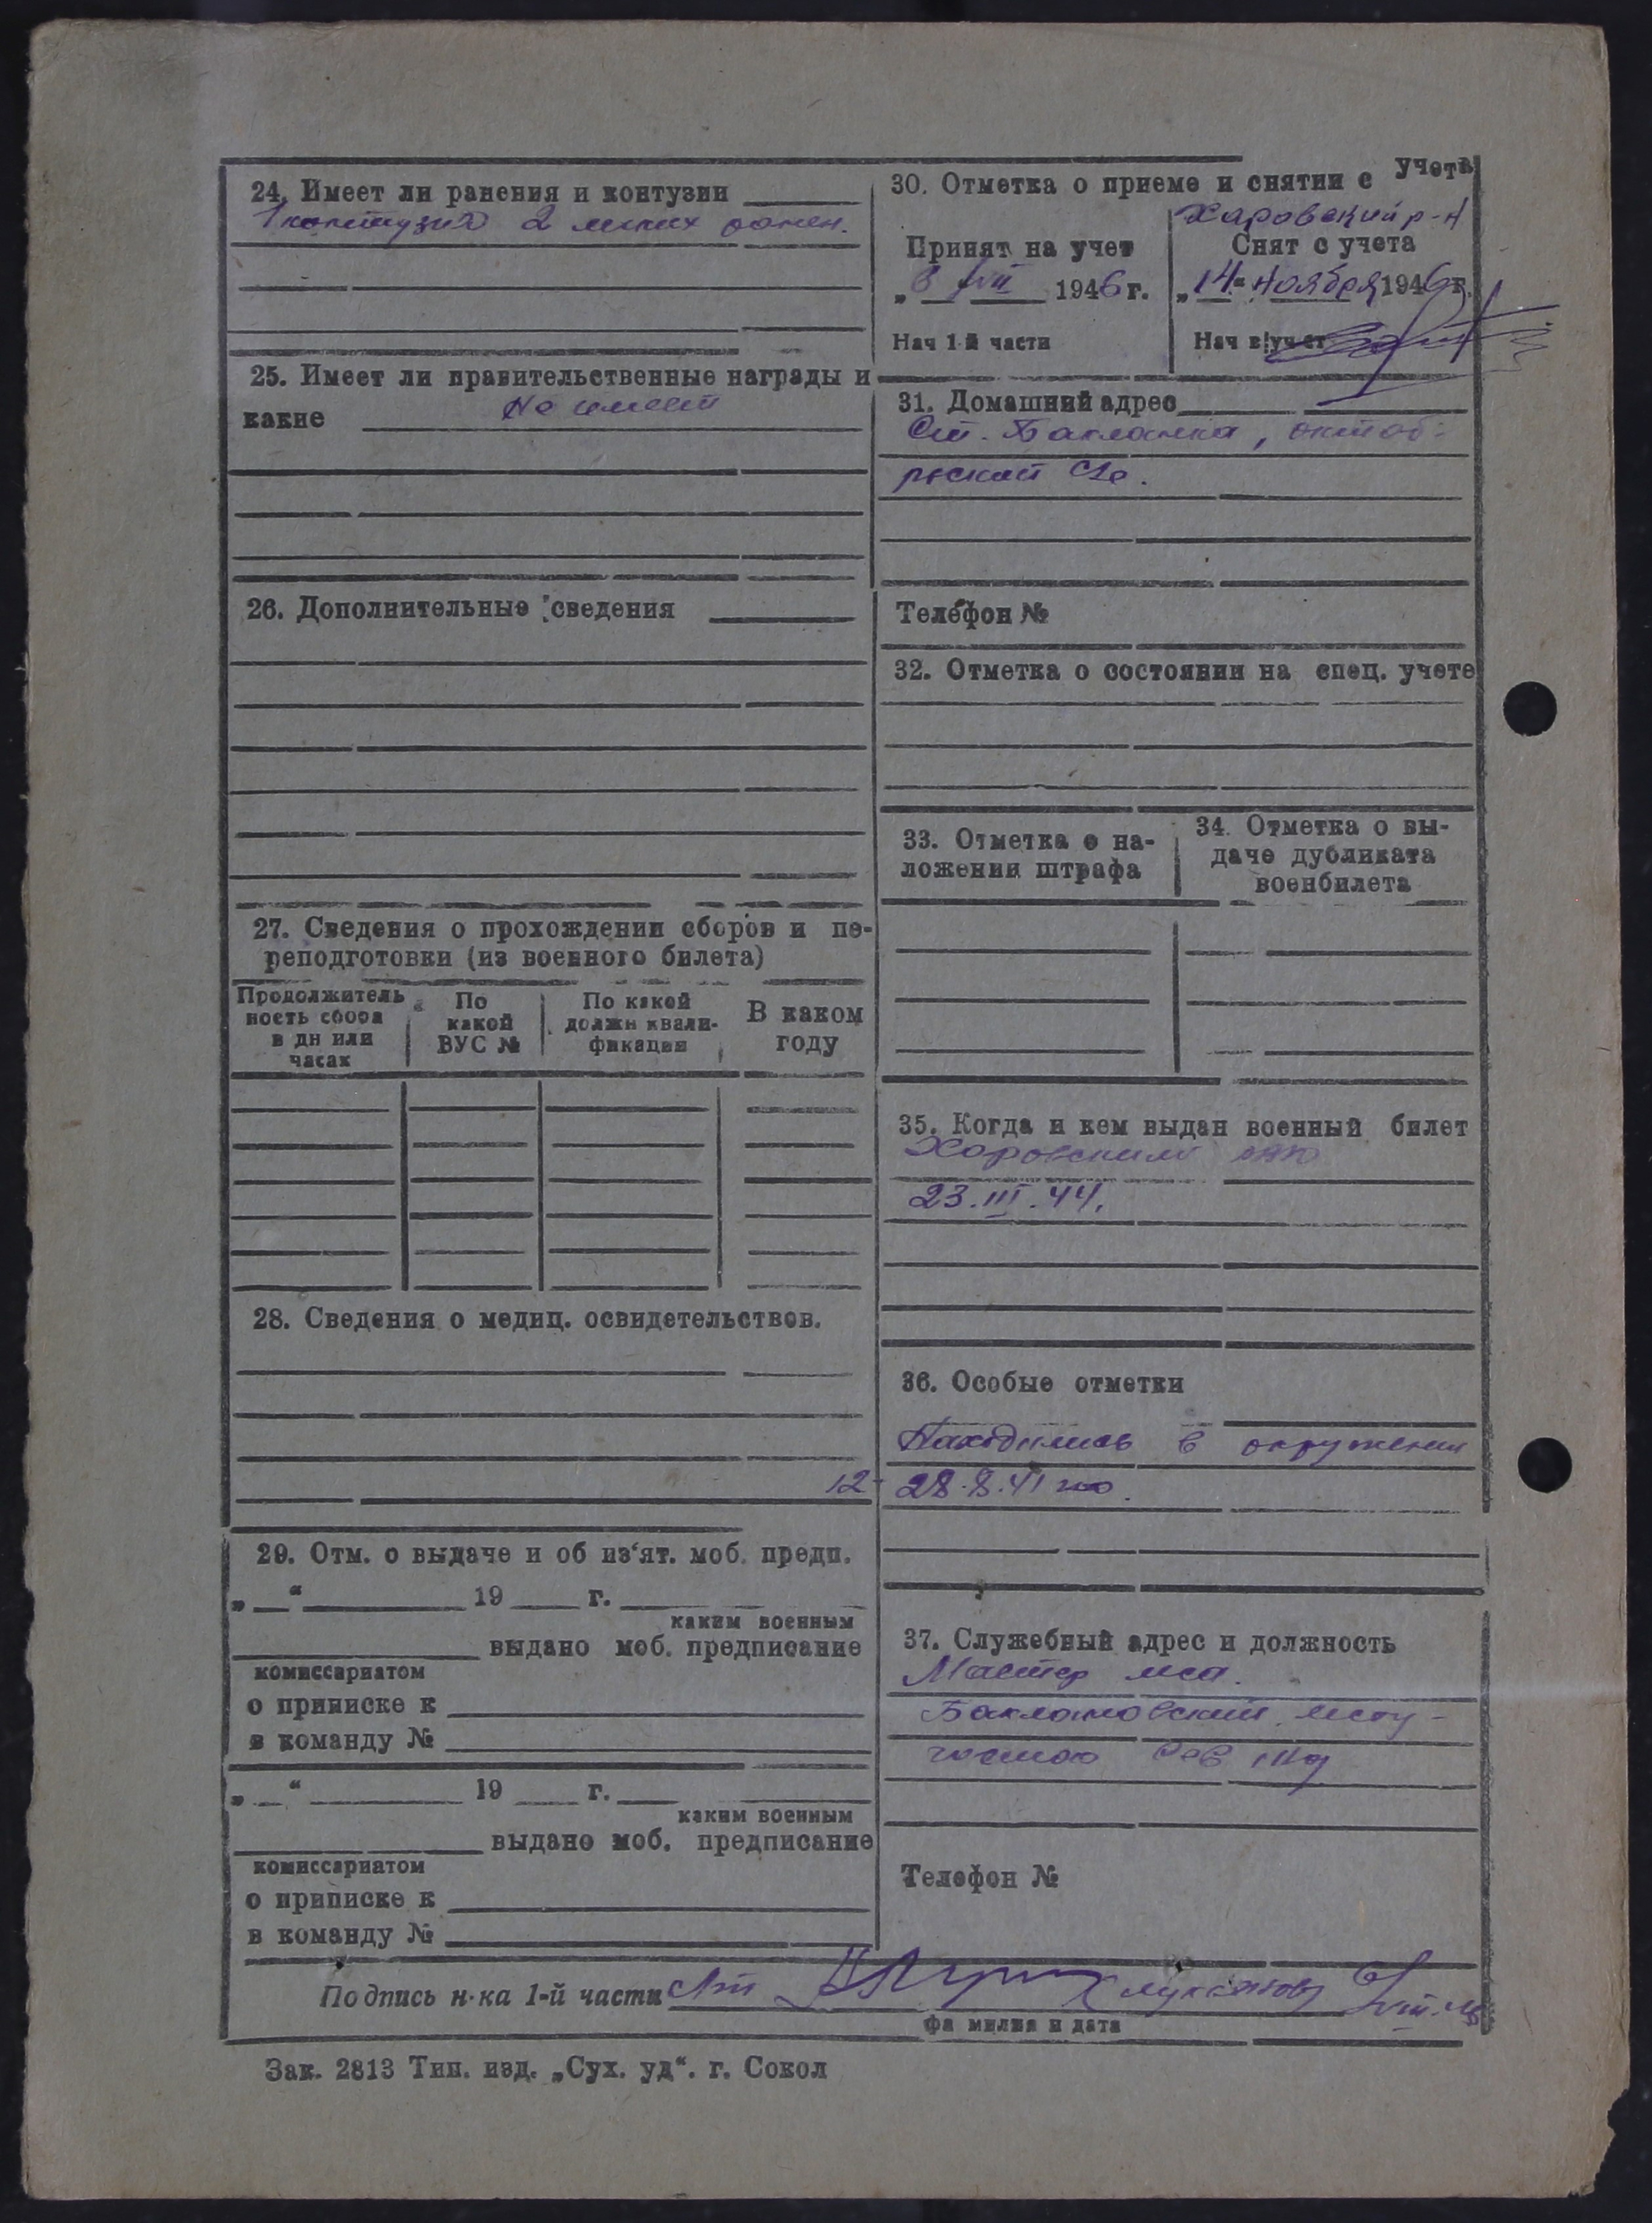 24. Имеет ли ранения и контузии
1 контузия 2 легких ранен.
25. Имеет ли правительственные награды и
какие Не имеет
26. Дополнительные сведения
27. Сведения о прохождении сборов и пе-
реподготовки (из военного билета)
Продолжитель
ность сбора
в дн или
часах
По
какой
ВУС №
По какой
должн квали-
фикации
В каком
году
28. Сведения о медиц. освидетельствов.
29. Отм. о выдаче и об из'ят. моб. предп.
„ “ 19 г.
каким военным
выдано моб. предписание
комиссариатом
о приписке к
в команду №
„ “ 19 г.
каким военным
выдано моб. предписание
комиссариатом
о приписке к
в команду №
30. Отметка о приеме и снятии с учета
Харовский р-н
Принят на учет
„8 VII 1946 г.
Нач 1-й части
Снят с учета
„14“ ноября 1946 г.
Нач в|учет
31. Домашний адрес
Ст. Бакланка, октяб-
рьской
Телефон №
32. Отметка о состоянии на спец. учете
33. Отметка о на-
ложении штрафа
34. Отметка о вы-
даче дубликата
военбилета
35. Когда и кем выдан военный билет
Харовским
23.III.44.
36. Особые отметки
Находились в окружении
12-28.8.41
37. Служебный адрес и должность
Мастер
Бакланский
Сев
Телефон №
Подпись н-ка 1-й части
фамилия и дата
Зак. 2813 Тип. изд. „Сух. уд“. г. Сокол